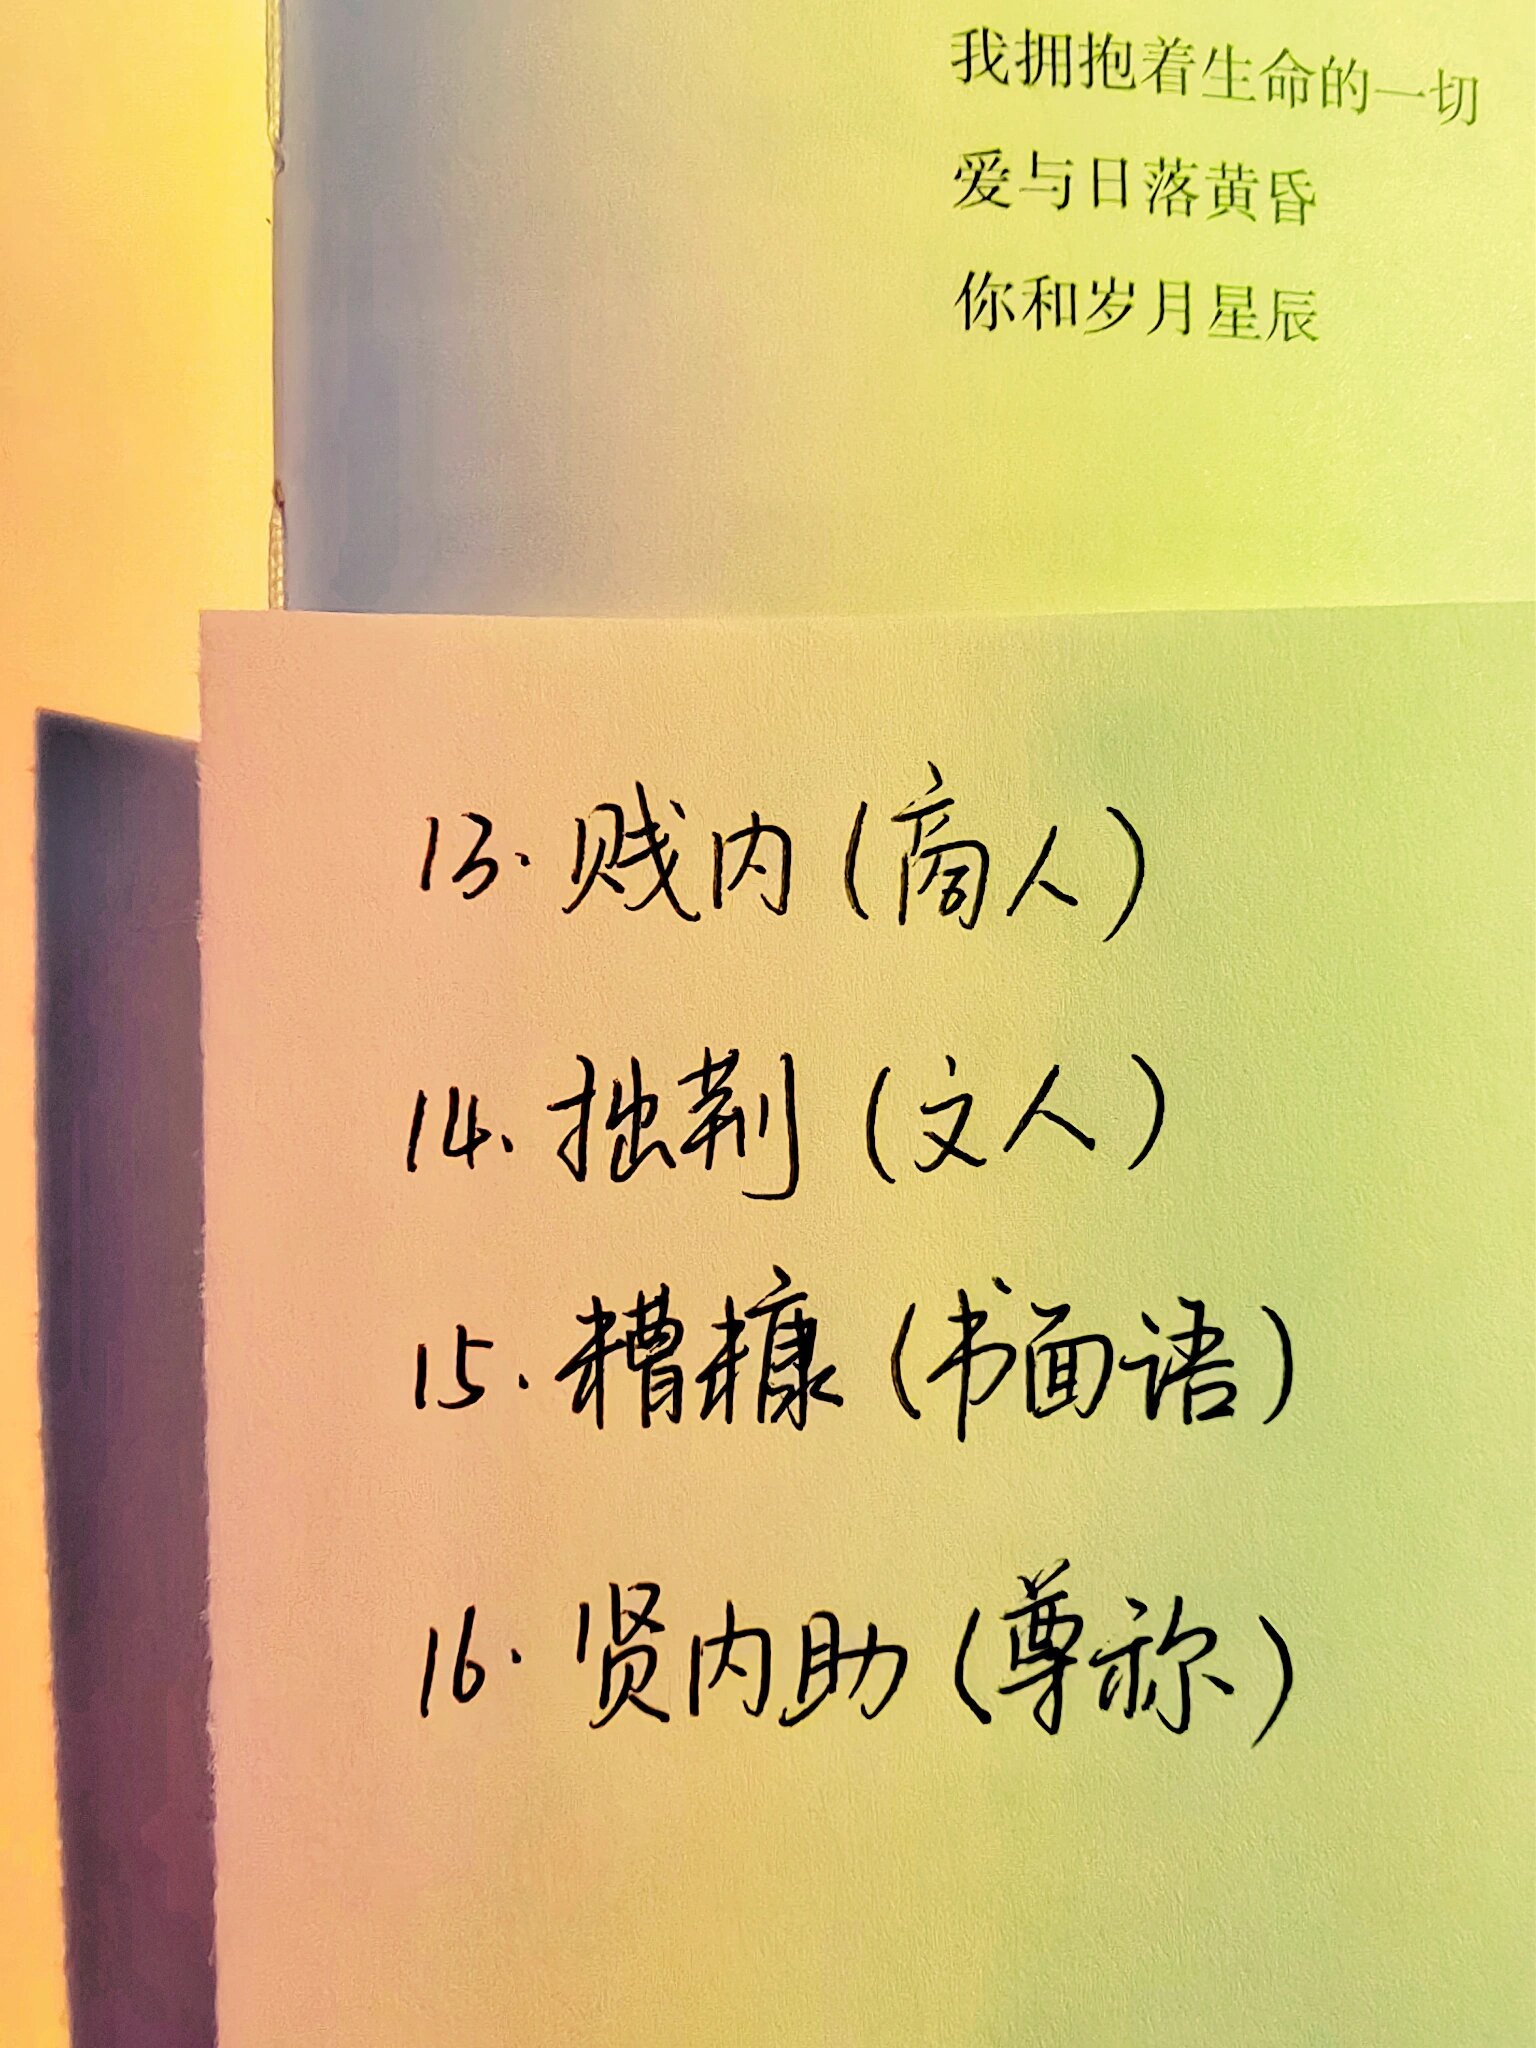 我拥抱着生命的一切
爱与日落黄昏
你和岁月星辰
13.贱内(商人)
14.拙荆(文人)
15.糟糠(书面语)
16.贤内助(尊称)